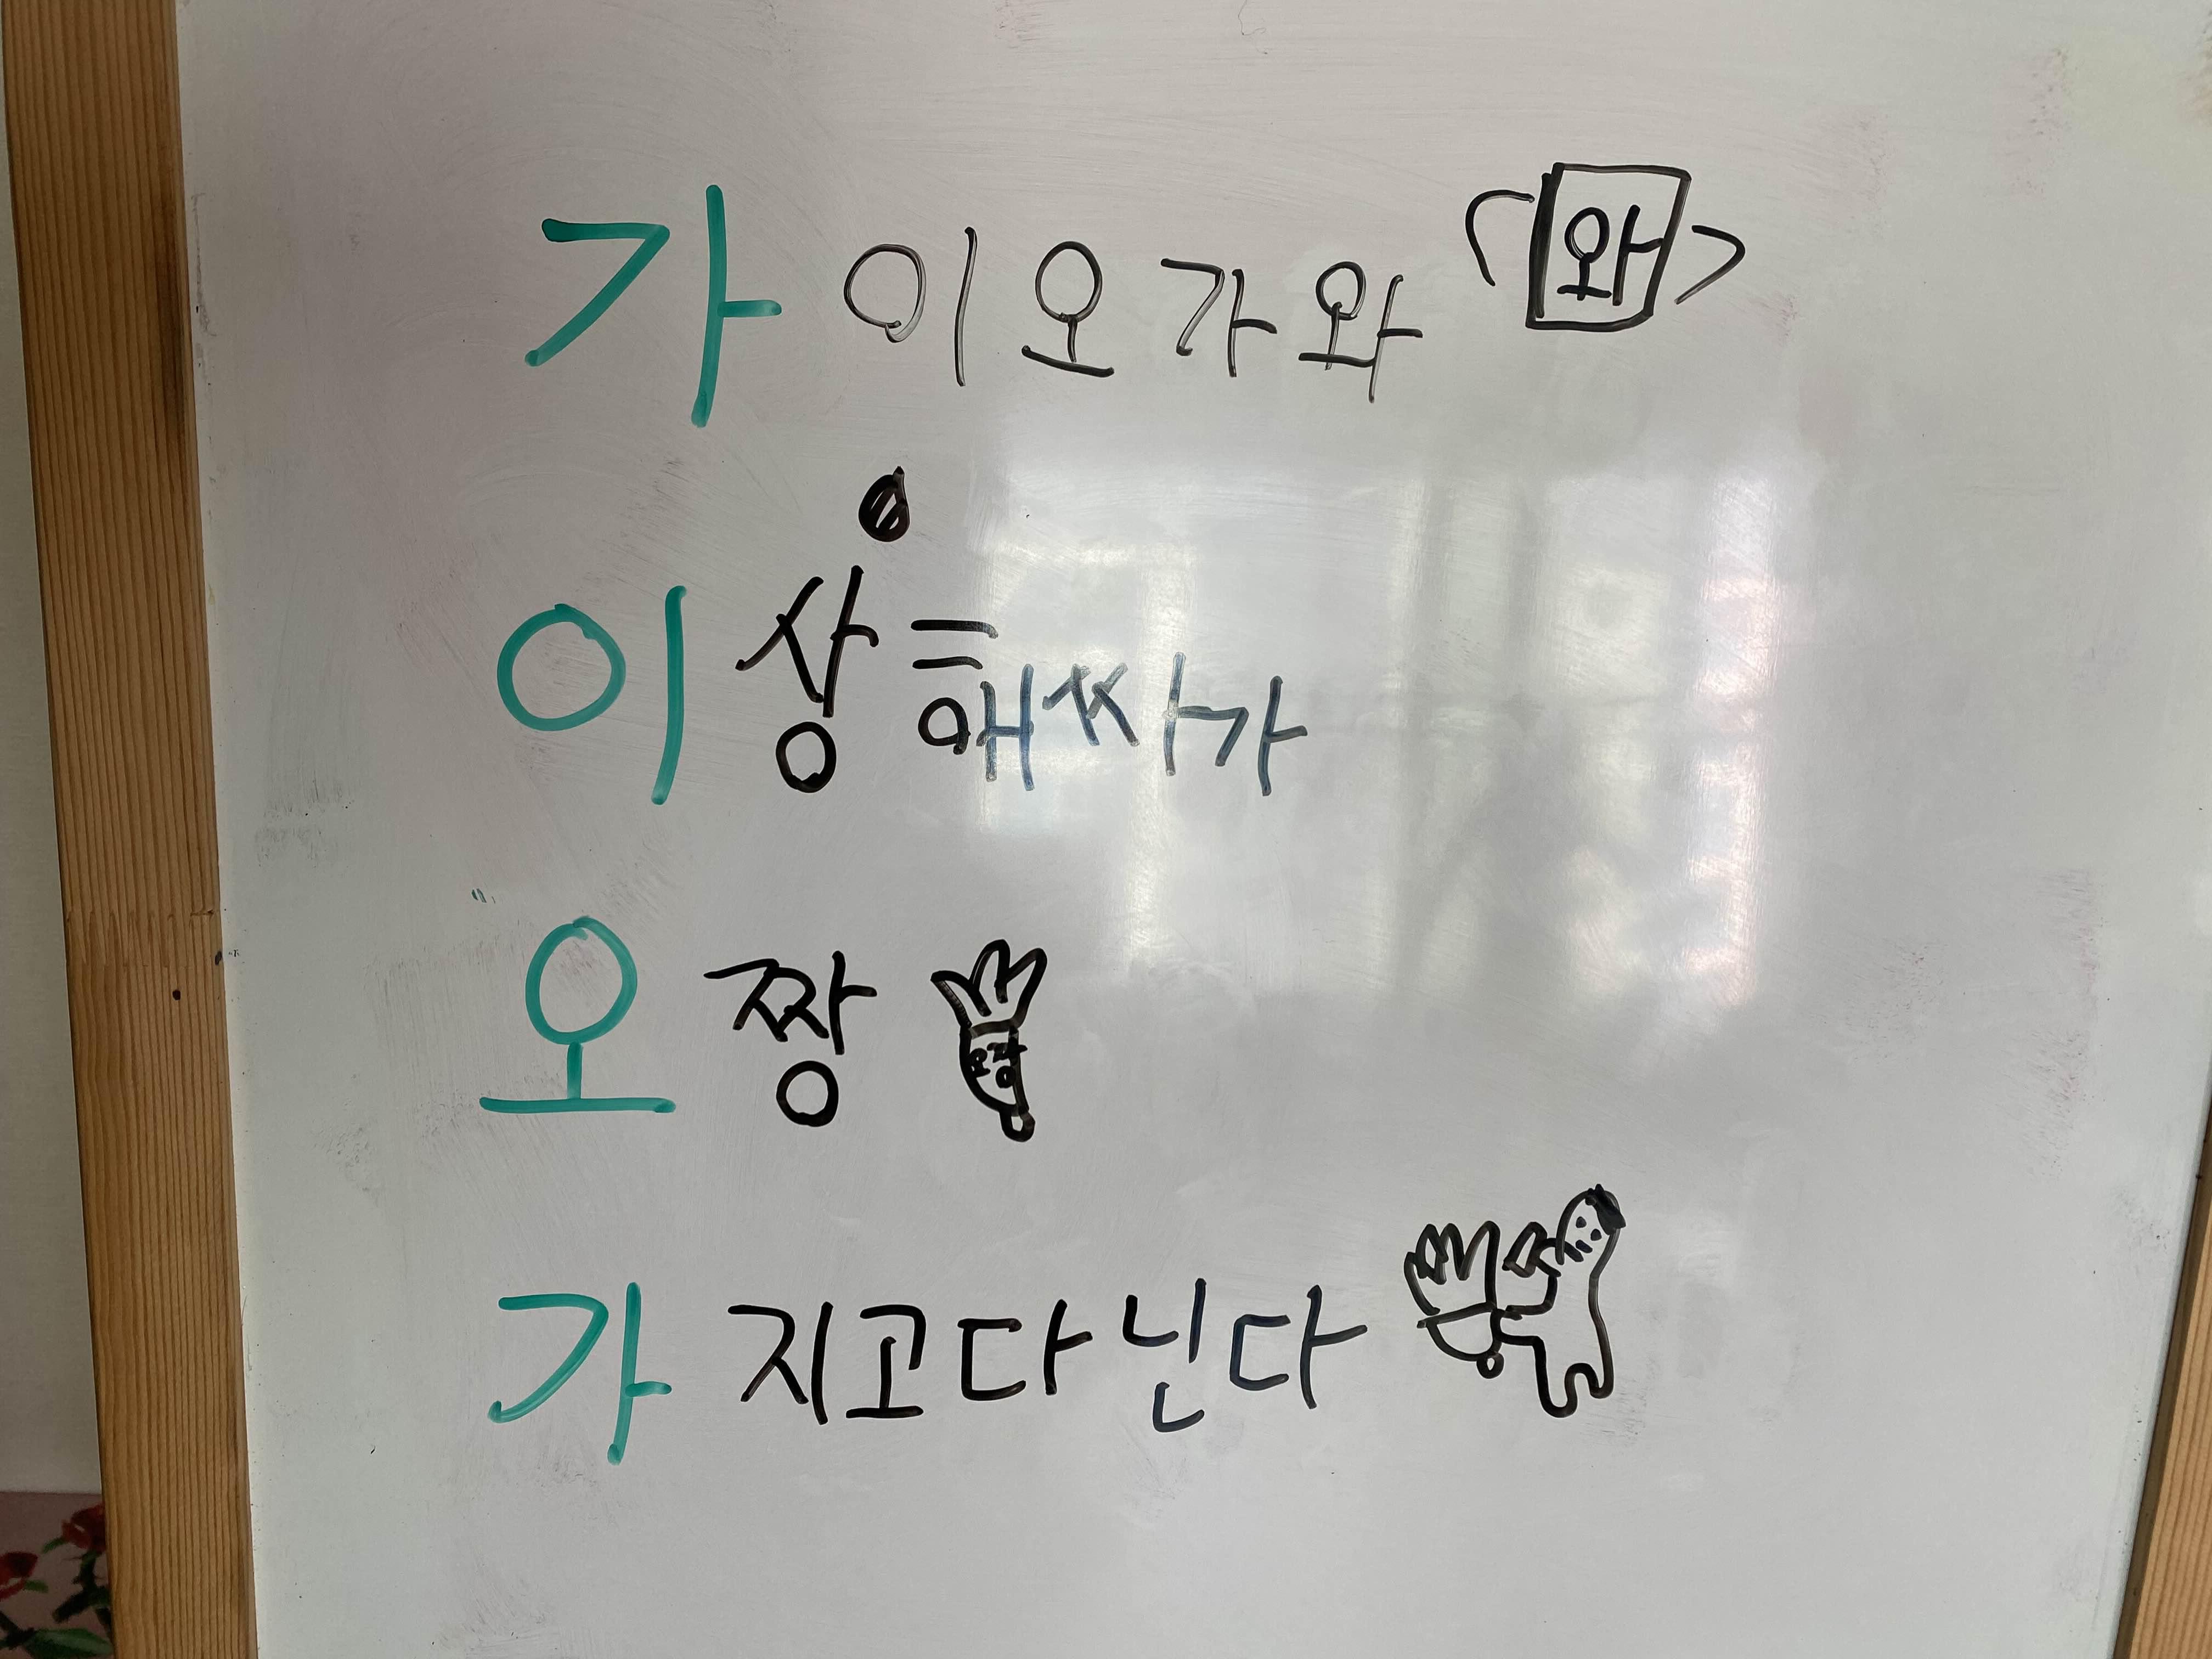 가이오가와 와
이상해씨가
오짱
가지고다닌다